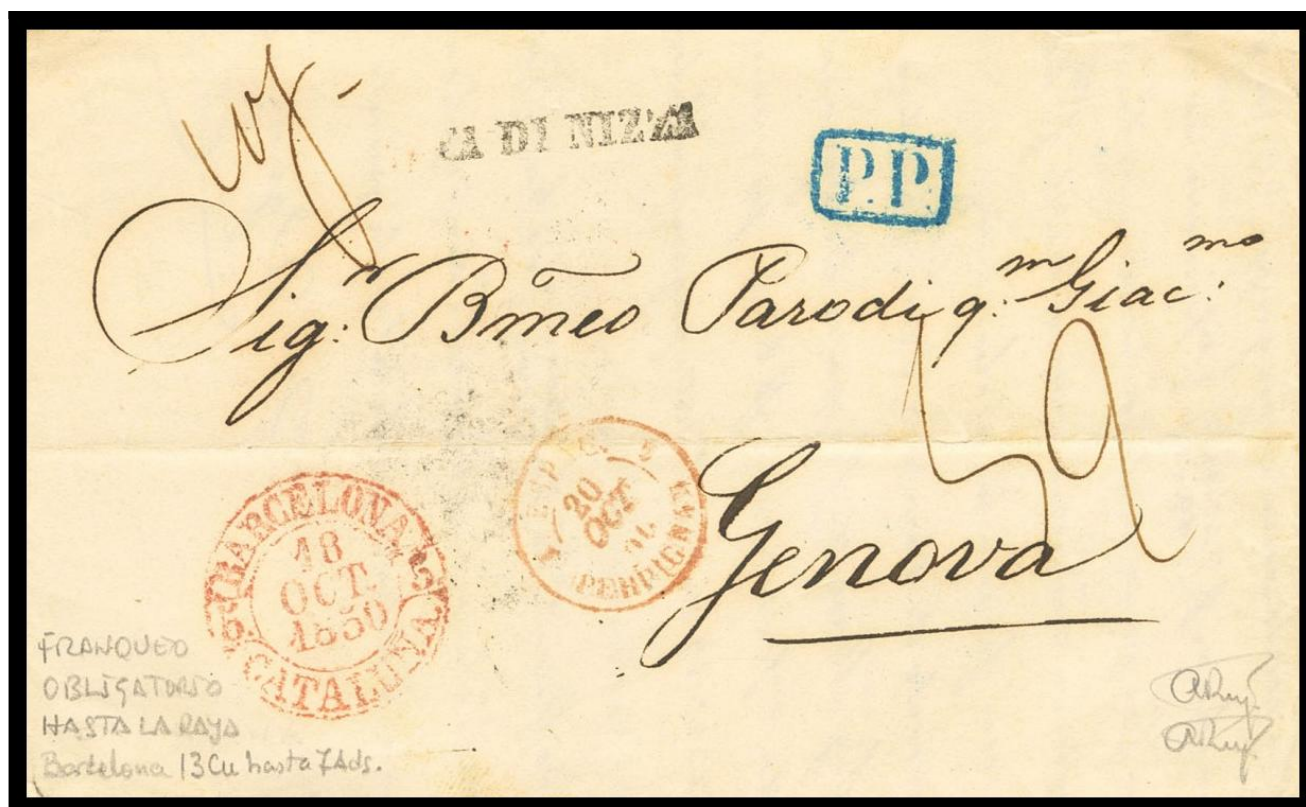 VIA DI NIZZA
P.P.
Sig.r Bmeo Parodi q.m Giac.mo
Genova
BARCELONA
18
OCT.
1850
CATALUÑA
20
OCT
50
PERPIGNAN
FRANQUEO
OBLIGATORIO
HASTA LA RAYA
Barcelona 13 Cu hasta 7 Ads.